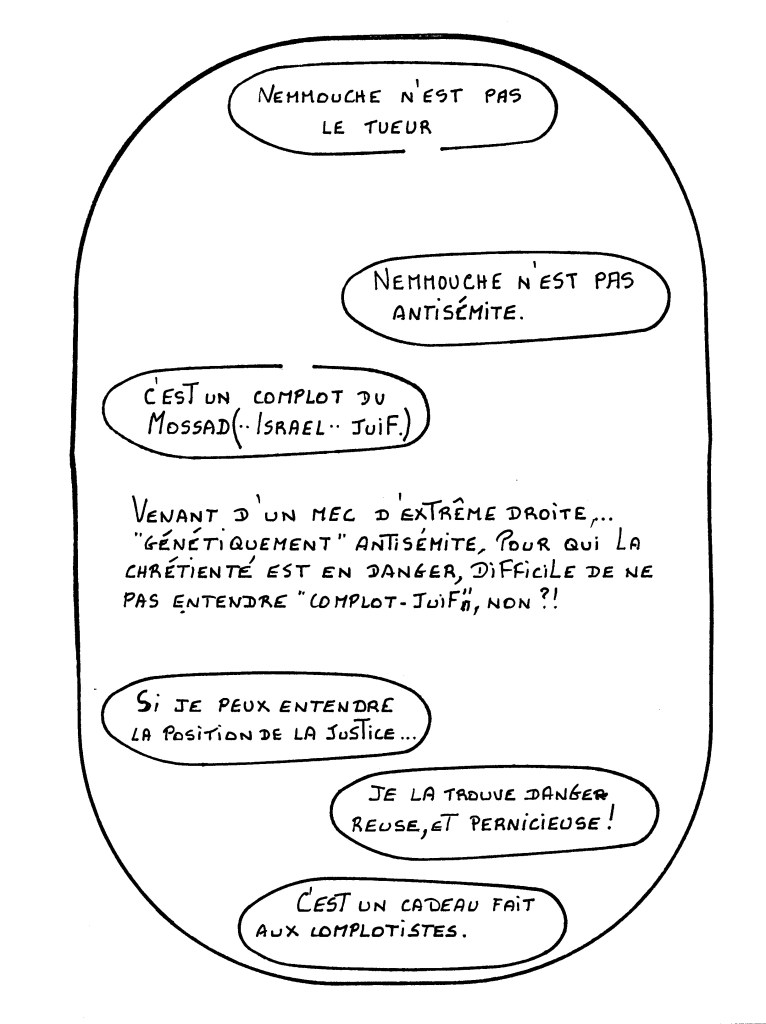 NEMMOUCHE N'EST PAS
LE TUEUR
NEMMOUCHE N'EST PAS
ANTISÉMITE.
C'EST UN COMPLOT DU
MOSSAD(..ISRAEL.. JUIF.)
VENANT D'UN MEC D'EXTRÊME DROITE,...
"GÉNÉTIQUEMENT" ANTISÉMITE, POUR QUI LA
CHRÉTIENTÉ EST EN DANGER, DIFFICILE DE NE
PAS ENTENDRE "COMPLOT-JUIF", NON ?!
SI JE PEUX ENTENDRE
LA POSITION DE LA JUSTICE...
JE LA TROUVE DANGE-
REUSE, ET PERNICIEUSE!
C'EST UN CADEAU FAIT
AUX COMPLOTISTES.